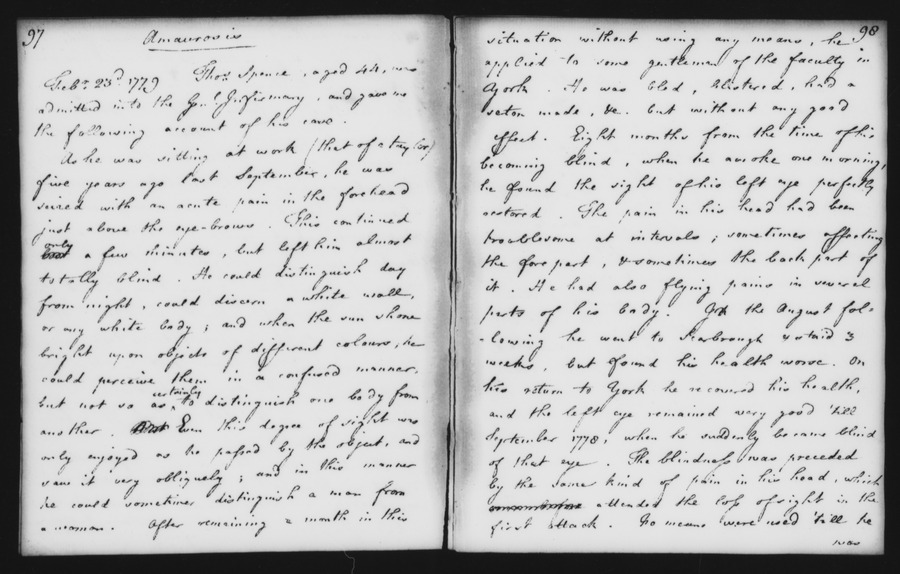 97
Amaurosis
Feb:y 23d 1779 Thos Spence, aged 44, was
admitted into the Genl Infirmary, and gave me
the following account of his case.
As he was sitting at work (that of a Taylor)
five years ago last September, he was
seized with an acute pain in the forehead
just above the eye-brows. This continued
only
a few minutes, but left him almost
totally blind. He could distinguish day
from night, could discern a white wall,
or any white body; and when the sun shone
bright upon objects of different colours, he
could perceive them in a confused manner.
certainly
but not so as to distinguish one body from
another. Even this degree of sight was
only enjoyed as he passed by the object, and
saw it very obliquely; and in this manner
he could sometimes distinguish a man from
a woman. After remaining a month in this
98
situation without using any means, he
applied to some gentlemen of the faculty in
York. He was bled, blistered, had a
seton made, &c. but without any good
effect. Eight months from the time of his
becoming blind, when he awoke one morning,
he found the sight of his left eye perfectly
restored. The pain in his head had been
troublesome at intervals; sometimes affecting
the fore part, & sometimes the back part of
it. He had also flying pains in several
parts of his body. In the August fol-
-lowing he went to Scarbrough & staid 3
weeks, but found his health worse. On
his return to York he recovered his health,
and the left eye remained very good 'till
September 1778, when he suddenly became blind
of that eye. The blindness was preceded
by the same kind of pain in his head, which
attended the loss of sight in the
first attack. No means were used 'till he
was